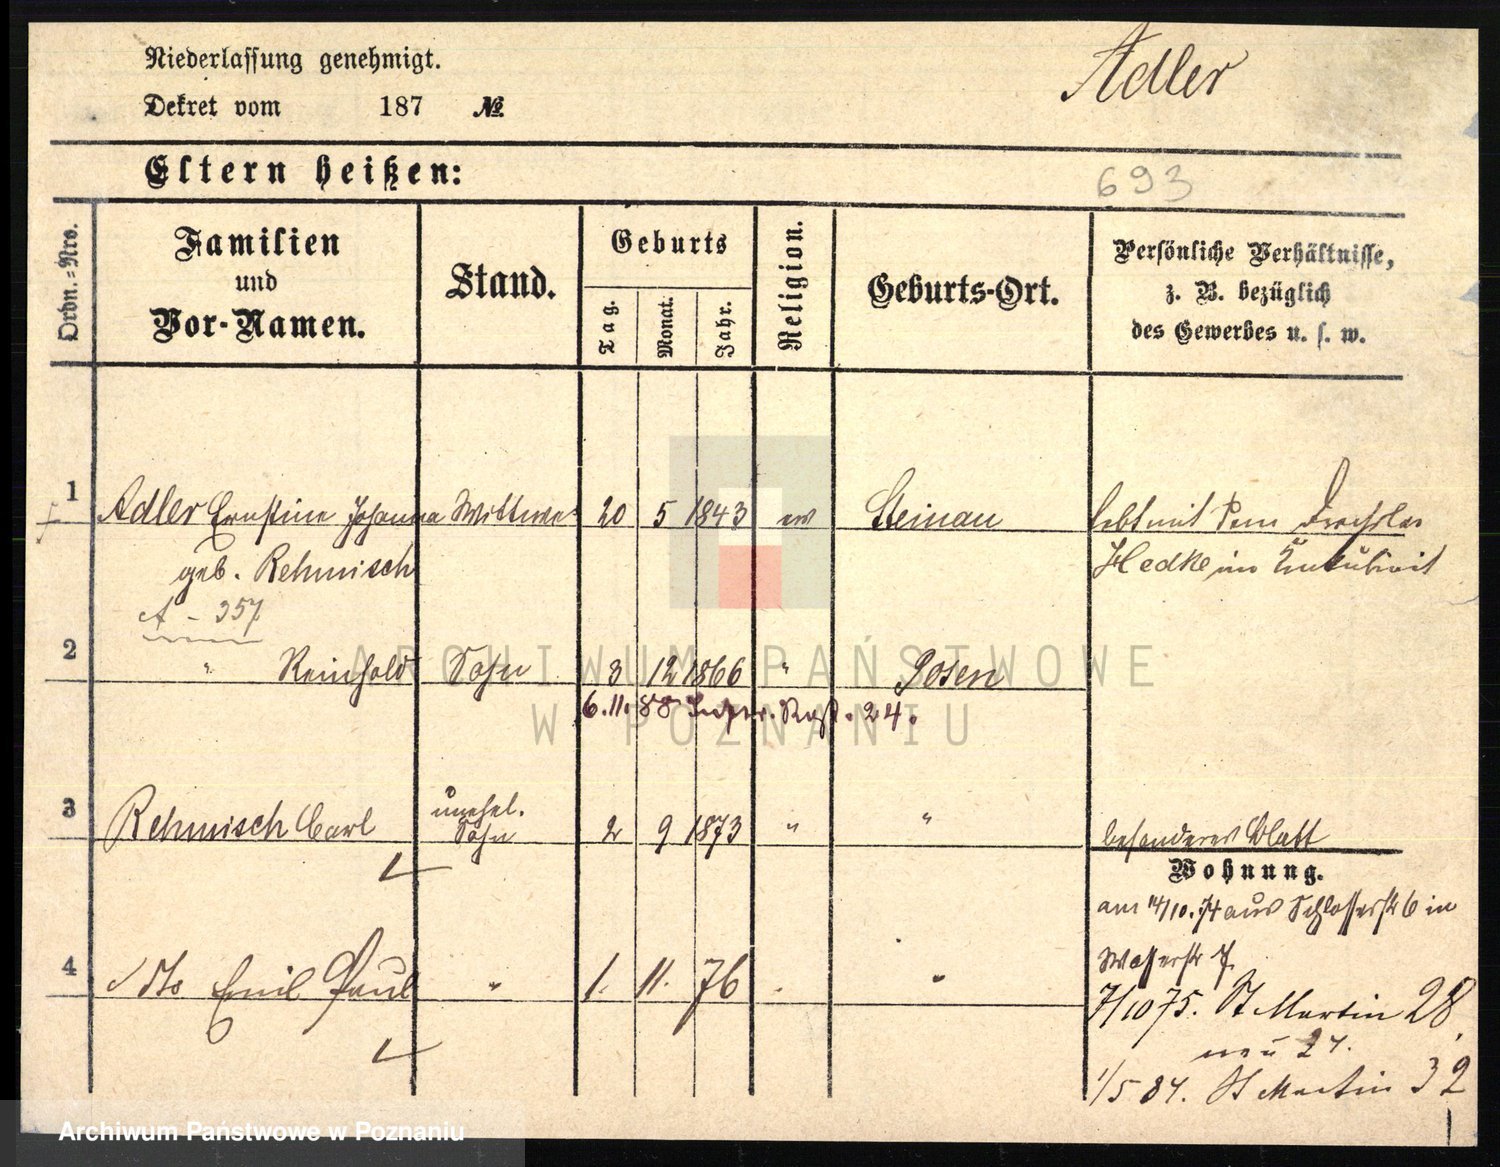 Niederlassung genehmigt.
Dekret vom 187 №
Adler
Eltern heißen:
693
Ordn.=Nro.
Familien
und
Vor-Namen.
Stand.
Geburts
Tag.
Monat.
Jahr.
Religion.
Geburts-Ort.
Persönliche Verhältnisse,
z. B. bezüglich
des Gewerbes u. s. w.
1 Adler Ernstine Johanna Wittwe 20 5 1843 ev Steinau lebt mit dem Drechsler
geb. Rehmisch Hedke im Konkubinat
A - 357
2 " Reinhold Sohn 3 12 1866 " Posen
6.11.88 24.
3 Rehmisch Carl unehel. Sohn 2 9 1873 " " besonderes Blatt
Wohnung.
am 14/10.74 aus Schlosserstr 6 in
Wasserstr 7.
4 dto Emil Paul " 1. 11. 76 "
7/10 75. St Martin 28,
neu 24.
1/5 84. St Martin 32
ARCHIWUM PAŃSTWOWE
W POZNANIU
Archiwum Państwowe w Poznaniu